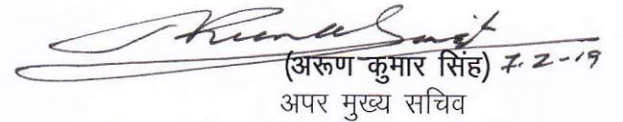 (अरूण कुमार सिंह) 7.2-19
अपर मुख्य सचिव